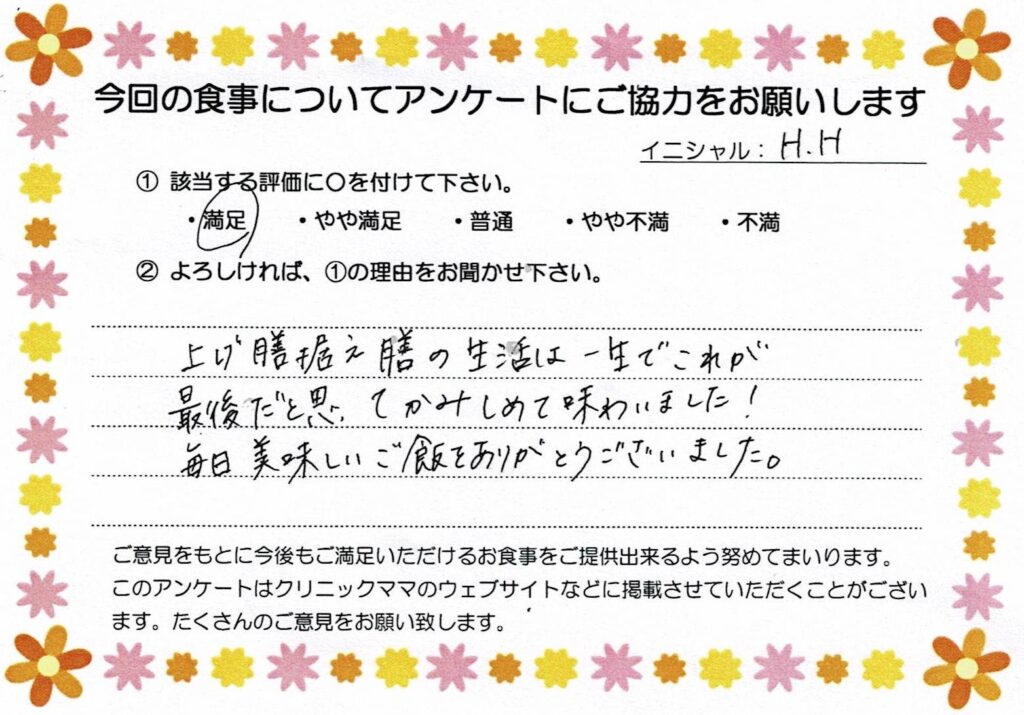 今回の食事についてアンケートにご協力をお願いします
イニシャル： H.H
① 該当する評価に〇を付けて下さい。
・満足 ・やや満足 ・普通 ・やや不満 ・不満
② よろしければ、①の理由をお聞かせ下さい。
上げ膳据え膳の生活は一生でこれが
最後だと思ってかみしめて味わいました！
毎日美味しいご飯をありがとうございました。
ご意見をもとに今後もご満足いただけるお食事をご提供出来るよう努めてまいります。
このアンケートはクリニックママのウェブサイトなどに掲載させていただくことがござい
ます。たくさんのご意見をお願い致します。